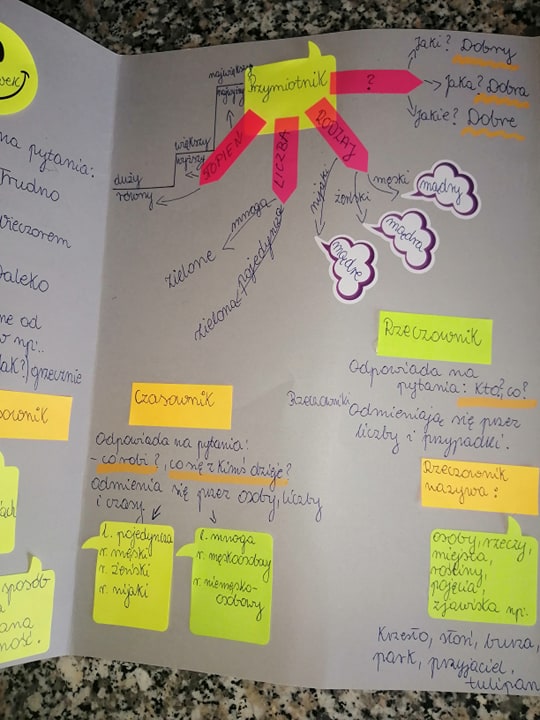 na pytania:
Trudno
wieczorem
Daleko
ne od
w np..
Jak? grzecznie
sownik
sposób
Przymiotnik
?
Jaki? Dobry
Jaka? Dobra
Jakie? Dobre
STOPIEŃ
LICZBA
RODZAJ
największy
najwyższy
większy
wyższy
duży
równy
mnoga
zielone
pojedyncza
zielona
nijaki
żeński
męski
mądry
mądra
mądre
Rzeczownik
Odpowiada na
pytania: Kto?, co?
Rzeczowniki
Odmieniają się przez
liczby i przypadki.
Rzeczownik
nazywa:
osoby, rzeczy,
miejsca,
rośliny,
pojęcia,
zjawiska np.:
Krzesło, słoń, burza,
park, przyjaciel,
tulipan
Czasownik
Odpowiada na pytania:
- co robi?, co się z kimś dzieje?
odmienia się przez osoby, liczby
i czasy.
l. pojedyncza
r. męski
r. żeński
r. nijaki
l. mnoga
r. męskoosoby
r. niemęsko-
osobowy